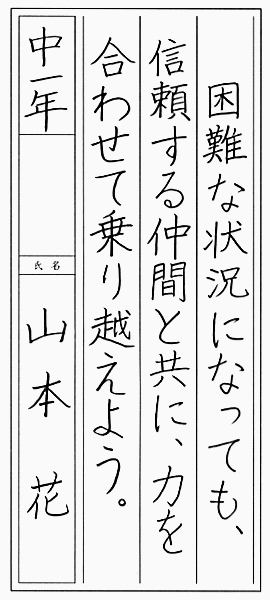 困難な状況になっても、
信頼する仲間と共に、力を
合わせて乗り越えよう。
中一年
氏名
山本花